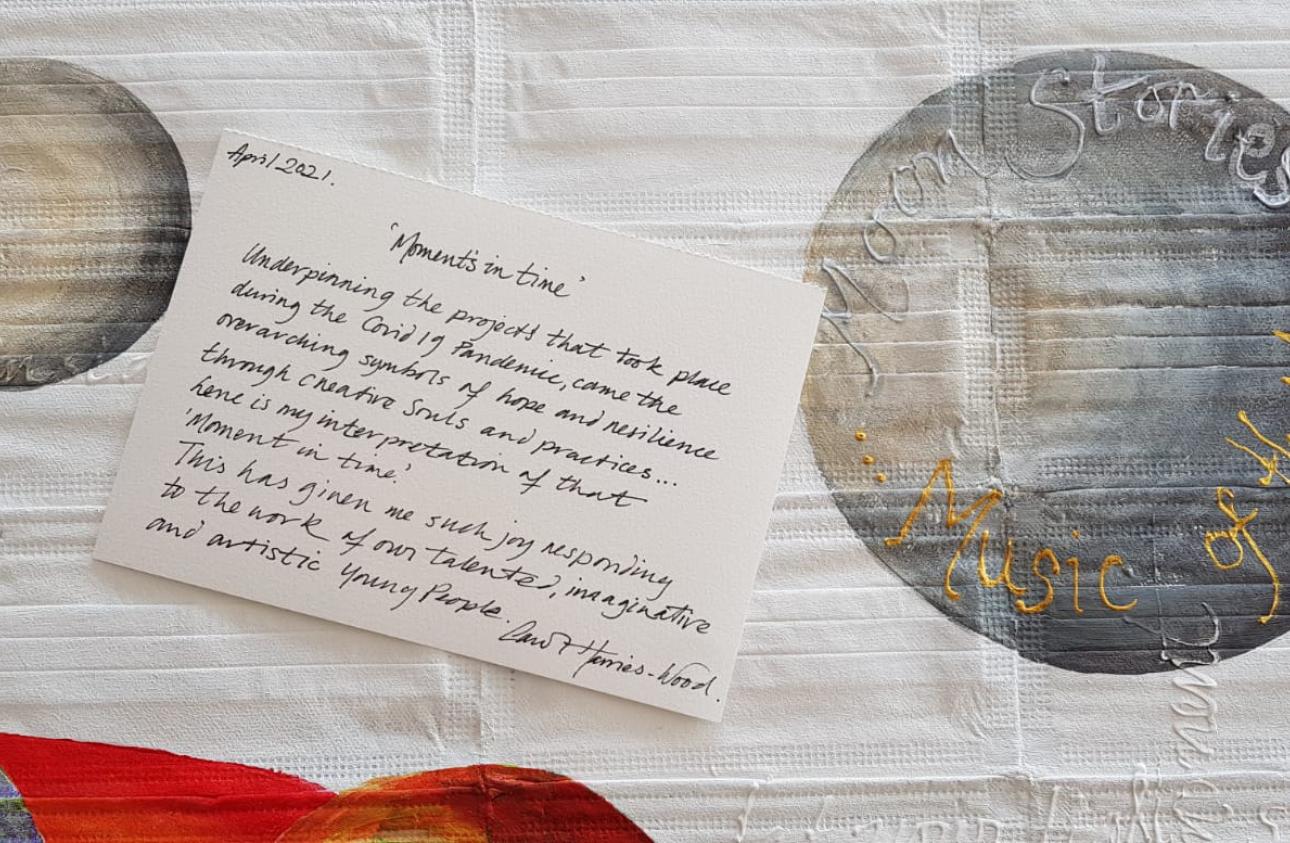 April 2021.
'Moments in time'
Underpinning the projects that took place
during the Covid 19 Pandemic, came the
overarching symbols of hope and resilience
through creative souls and practices...
here is my interpretation of that
'Moment in time'.
This has given me such joy responding
to the work of our talented, imaginative
and artistic Young People.
Harries-Wood.
Moon Stories
Music of